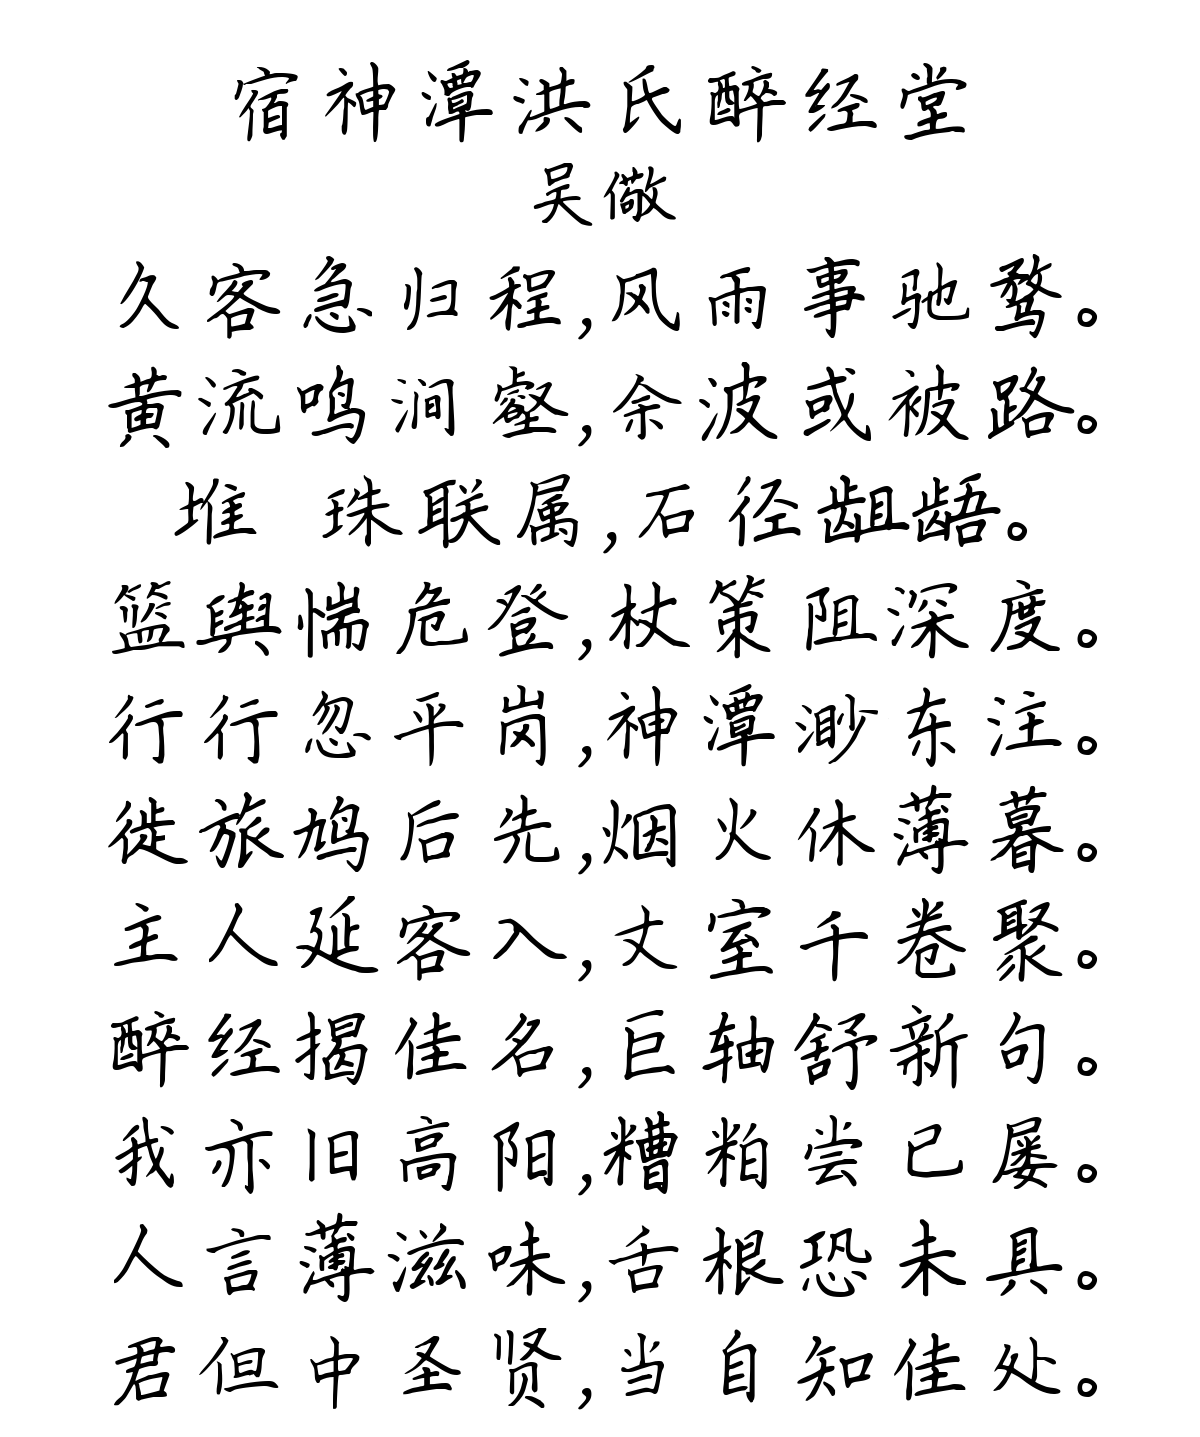 宿神潭洪氏醉经堂
吴儆
久客急归程,风雨事驰鹜。
黄流鸣涧壑,余波或被路。
堆 珠联属,石径龃龉。
篮舆惴危登,杖策阻深度。
行行忽平岗,神潭渺东注。
徙旅鸠后先,烟火休薄暮。
主人延客入,丈室千卷聚。
醉经揭佳名,巨轴舒新句。
我亦旧高阳,糟粕尝已屡。
人言薄滋味,舌根恐未具。
君但中圣贤,当自知佳处。